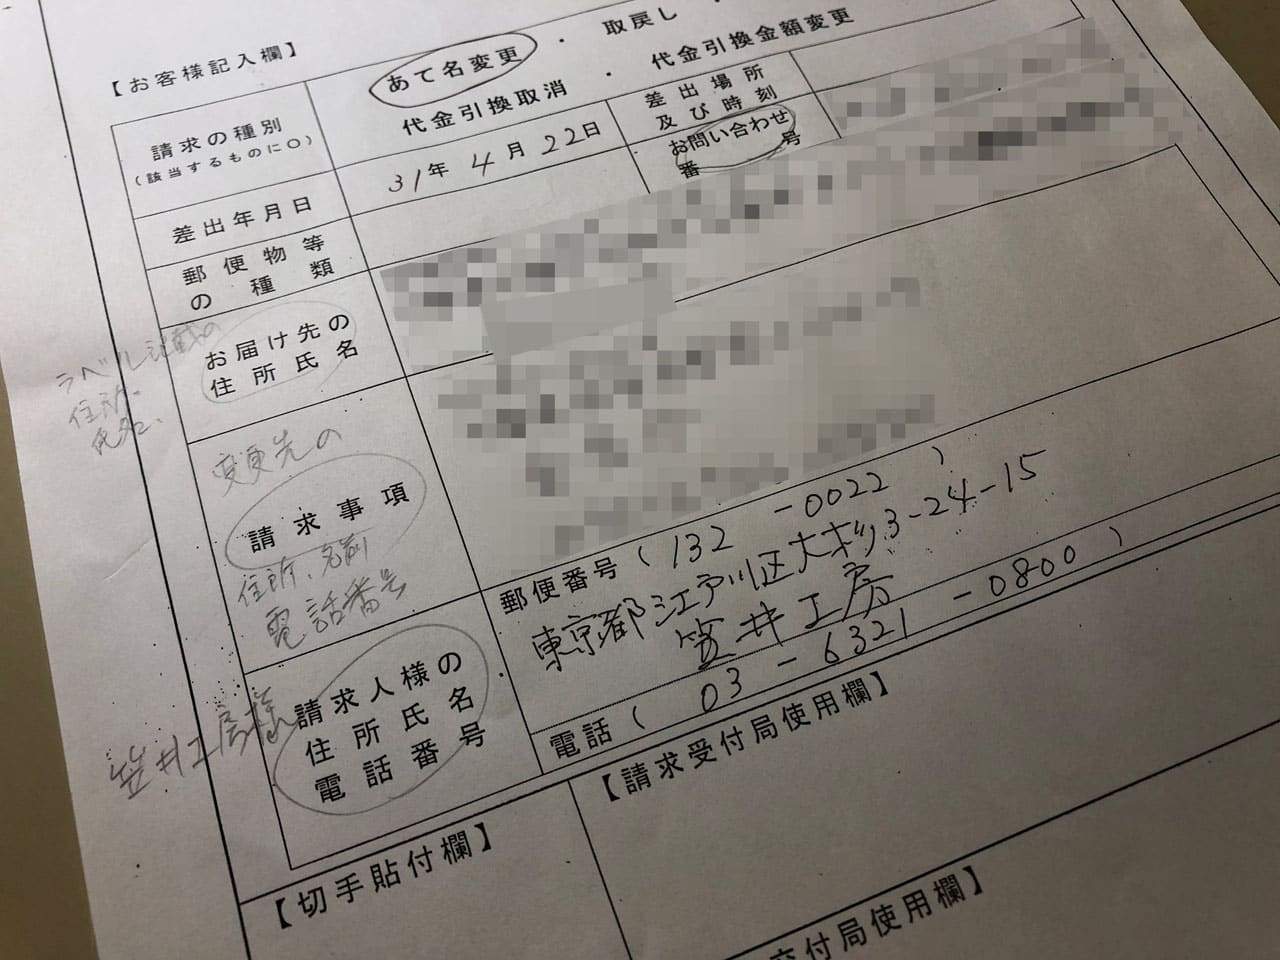 【お客様記入欄】
請求の種別
(該当するものに〇)
あて名変更 ・ 取戻し ・
代金引換取消 ・ 代金引換金額変更
差出年月日
31年 4月 22日
差出場所
及び時刻
郵便物等
の種類
お問い合わせ
番号
お届け先の
住所氏名
ラベル記載の
住所、
氏名、
変更先の
請求事項
住所、名前
電話番号
請求人様の
住所氏名
電話番号
笠井工房様
郵便番号 ( 132 -0022 )
東京都江戸川区大杉3-24-15
笠井工房
電話 ( 03 - 6321 -0800 )
【切手貼付欄】
【請求受付局使用欄】
交付局使用欄】